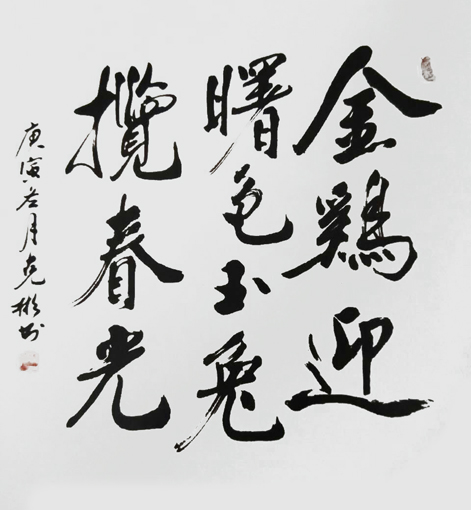 金鷄迎
曙色玉兔
攬春光
庚寅冬月克彬书